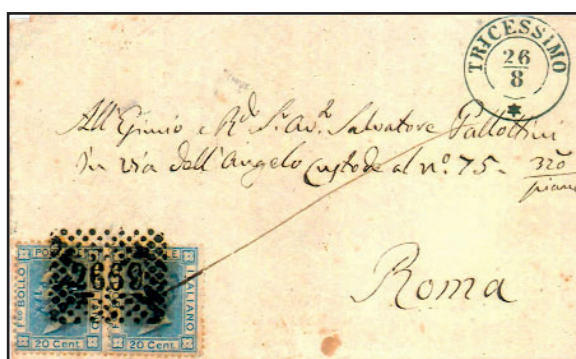 TRICESSIMO
26
8
All'Egimio e R.do Sr. Av.t Salvatore Pallottini
in via dell'Angelo Custode al n.o 75. 3zo
piano
Roma
2669
POSTALE
F.co BOLLO
ITALIANO
20 Cent.
20 Cent.